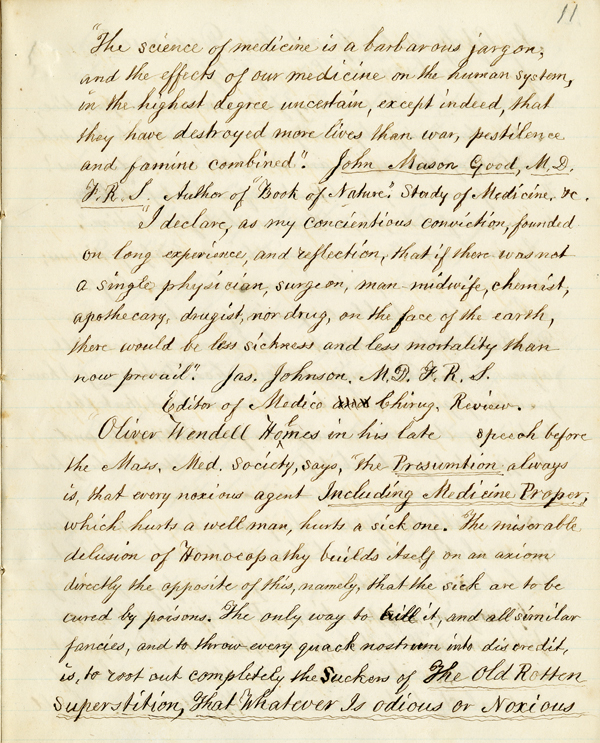 11
"The science of medicine is a barbarous jargon,
and the effects of our medicine on the human system,
in the highest degree uncertain, except indeed, that
they have destroyed more lives than war, pestilence
and famine combined". John Mason Good, M.D.
F.R.S. Author of "Book of Nature". Study of Medicine, &c.
"I declare, as my concientious conviction, founded
on long experience, and reflection, that if there was not
a single physician, surgeon, man-midwife, chemist,
apothecary, drugist, nor drug, on the face of the earth,
there would be less sickness and less mortality than
now prevail". Jas. Johnson, M.D. F.R.S.
Editor of Medico Chirug. Review.
"Oliver Wendell Homes in his late speech before
the Mass. Med. Society, says, "The Presumtion always
is, that every noxious agent Including Medicine Proper,
which hurts a well man, hurts a sick one. "The miserable
delusion of Homoeopathy builds itself on an axiom
directly the opposite of this, namely, that the sick are to be
cured by poisons. The only way to kill it, and all similar
fancies, and to throw every quack nostrum into discredit,
is, to root out completely the Suckers of The Old Rotten
Superstition, That Whatever Is odious or Noxious